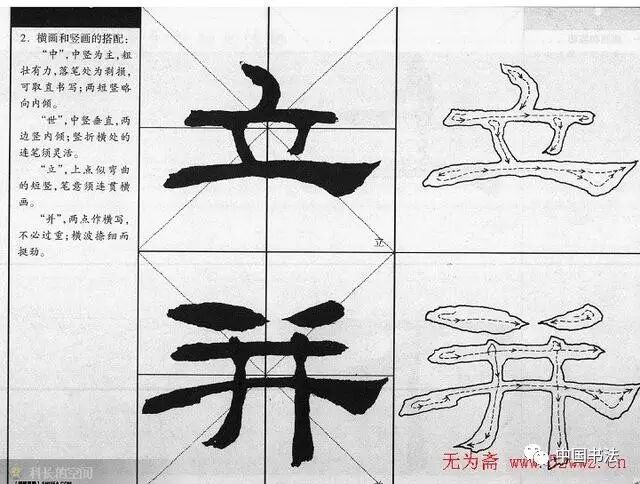 2. 横画和竖画的搭配：
“中”，中竖为主，粗
壮有力，落笔处为剥损，
可取直书写；两短竖略
向内倾。
“世”，中竖垂直，两
边竖内倾；竖折横处的
连笔须灵活。
“立”，上点似弯曲
的短竖，笔意须连贯横
画。
“并”，两点作横写，
不必过重；横波捺细而
挺劲。
立
立
并
并
科长的空间
中国书法
无为斋